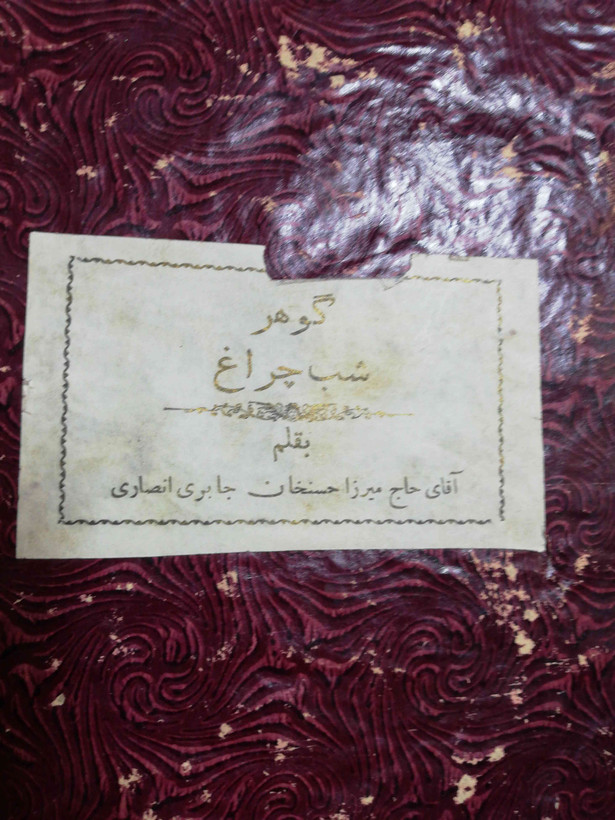 گوهر
شب چراغ
بقلم
آقای حاج میرزا حسنخان جابری انصاری